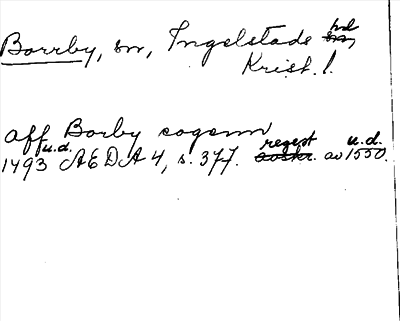 Borrby, sn, Ingelstads hd
Krist. l.
aff Borby sogenn
1493 u.d. ÆDA 4, s. 377. regest av 1550 u.d.